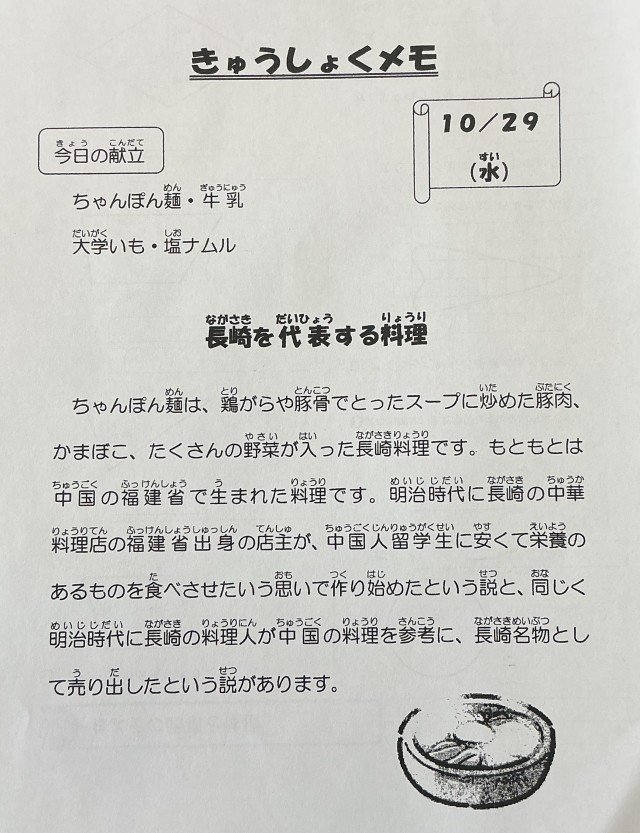 きゅうしょくメモ
10/29
(水)
今日の献立
ちゃんぽん麺・牛乳
大学いも・塩ナムル
長崎を代表する料理
ちゃんぽん麺は、鶏がらや豚骨でとったスープに炒めた豚肉、
かまぼこ、たくさんの野菜が入った長崎料理です。もともとは
中国の福建省で生まれた料理です。明治時代に長崎の中華
料理店の福建省出身の店主が、中国人留学生に安くて栄養の
あるものを食べさせたいう思いで作り始めたという説と、同じく
明治時代に長崎の料理人が中国の料理を参考に、長崎名物とし
て売り出したという説があります。